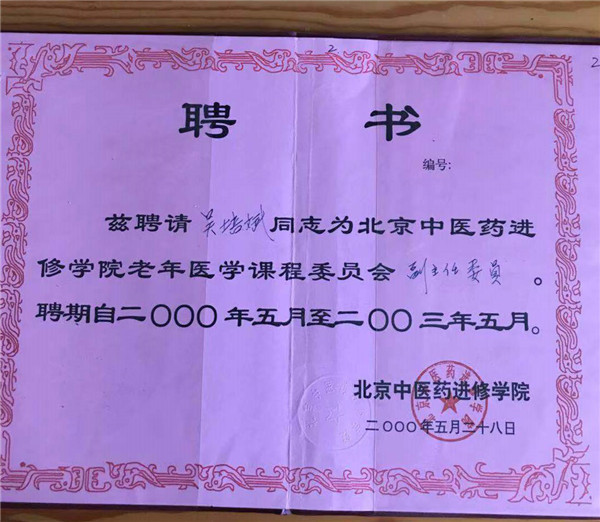 2
2
聘 书
编号:
兹聘请 吴培斌 同志为北京中医药进
修学院老年医学课程委员会 副主任委员 。
聘期自二〇〇〇年五月至二〇〇三年五月。
北京中医药进修学院
二〇〇〇年五月二十八日